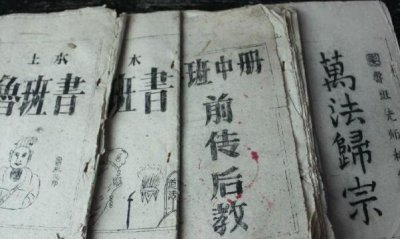 土木
魯班書
木
班書
班中册
前传后教
萬法歸宗
魯班先师